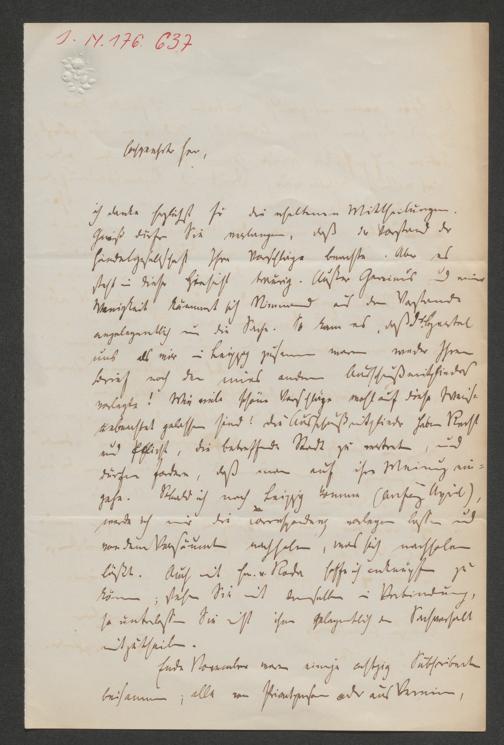 I. N. 176.637
Hochgeehrter Herr,
ich danke herzlichst für die erhaltenen Mittheilungen.
Gewiß dürfen Sie verlangen, daß der Vorstand der
Händelgesellschaft Ihre Vorschläge beachte. Aber es
steht in dieser Hinsicht traurig. Außer Gervinus und meiner
Wenigkeit kümmert sich Niemand aus dem Vorstande
angelegentlich um die Sache. So kam es, daß Dr Härtel
uns als wir in Leipzig zusammen waren weder Ihren
Brief noch den eines anderen Ausschußmitgliedes
vorlegte! Wie viele schöne Vorschläge wohl auf diese Weise
unbeachtet gelassen sind! die Ausschußmitglieder haben Recht
und Pflicht, die betreffende Stadt zu vertreten, und
dürfen fordern, daß man auf ihre Meinung ein=
gehe. Sobald ich nach Leipzig komme (Anfang April),
werde ich mir die Correspondenz vorlegen lassen und
von dem Versäumten nachholen, was sich nachholen
läßt. Auch mit Hn. v. Roda hoffe ich anknüpfen zu
können; stehen Sie mit demselben in Verbindung,
so unterlassen Sie nicht ihm gelegentlich den Sachverhalt
mitzutheilen.
Ende November waren einige achtzig Subscribenten
beisammen; alle von Privatpersonen oder aus Vereinen,